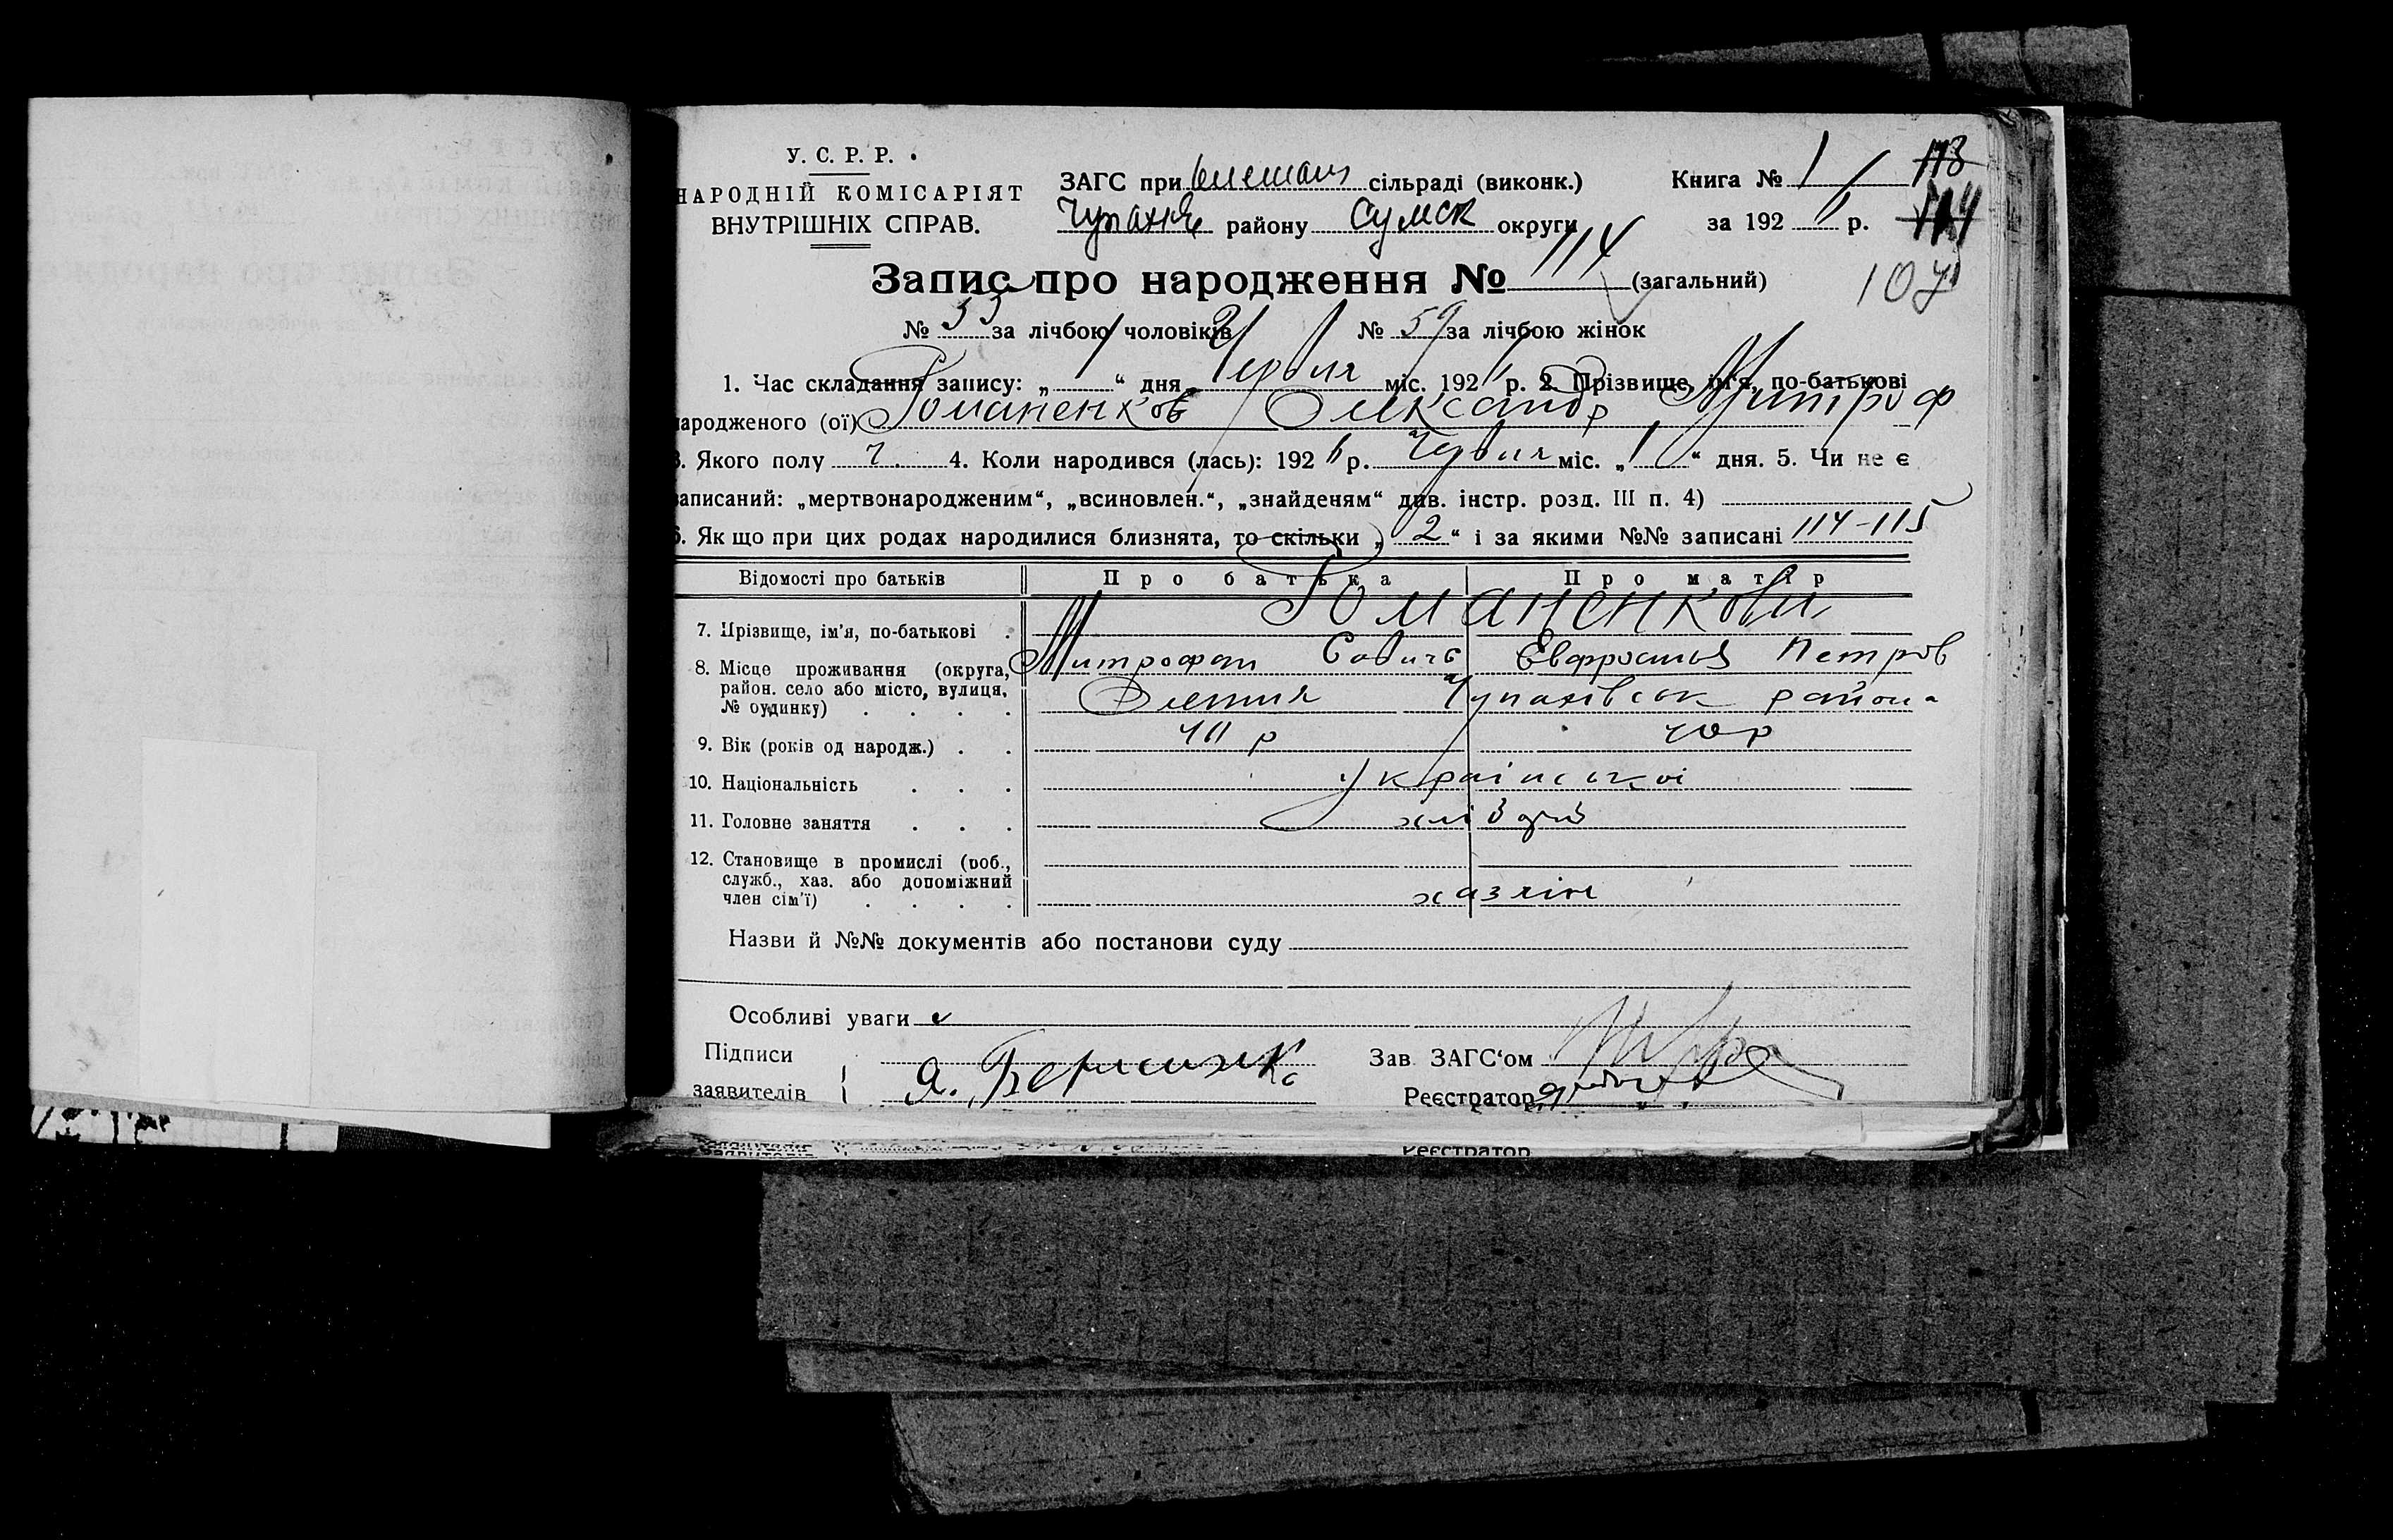 У. С. Р. Р.
НАРОДНІЙ КОМІСАРІЯТ
ВНУТРІШНІХ СПРАВ.
ЗАГС при сільраді (виконк.)
району Сумск округи
Книга № 1
за 192 р.
113
114
107
Запис про народження № 114 (загальний)
№ 55 за лічбою чоловіків № 59 за лічбою жінок
1. Час складання запису: „ 1 “ дня Червня міс. 192 р. 2. Прізвище, ім'я, по-батькові
народженого (ої) Романенков Олександр Митроф
3. Якого полу ч. 4. Коли народився (лась): 192 6 р. Червня міс. „ 1 “ дня. 5. Чи не є
записаний: „мертвонародженим“, „всиновлен.“, „знайденям“ див. інстр. розд. III п. 4)
6. Як що при цих родах народилися близнята, то скільки „ 2 “ і за якими №№ записані 114-115
Відомості про батьків Про батька Про матір
7. Прізвище, ім'я, по-батькові Романенкови
Митрофан Савич Евфросинья Петров
8. Місце проживання (округа,
район. село або місто, вулиця,
№ будинку) Чупахівськ района
9. Вік (років од народж.) р 40 р
10. Національність Української
11. Головне заняття хлібороб
12. Становище в промислі (роб.,
служб., хаз. або допоміжний
член сім'ї) хазяїн
Назви й №№ документів або постанови суду
Особливі уваги
Підписи
заявителів
Зав ЗАГС'ом
Реєстратор
Реєстратор